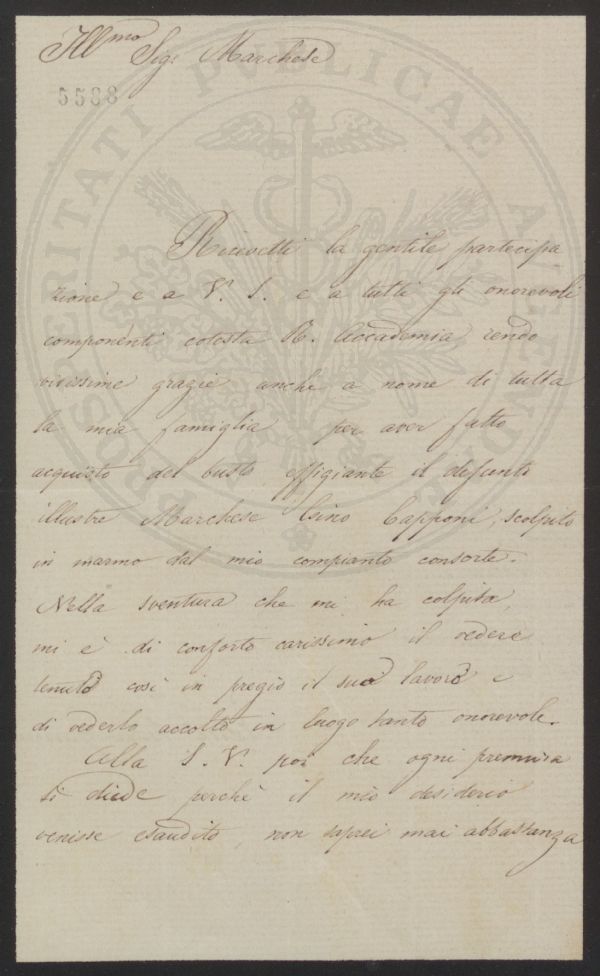 Ill.mo Sig: Marchese
5588
Ricevetti la gentile partecipa
zione e a V. S. e a tutti gli onorevoli
componenti cotesta R. Accademia rendo
vivissime grazie anche a nome di tutta
la mia famiglia per aver fatto
acquisto del busto effigiante il defunto
illustre Marchese Gino Capponi, scolpito
in marmo dal mio compianto consorte.
Nella sventura che mi ha colpita,
mi è di conforto carissimo il vedere
tenuto così in pregio il suo lavoro e
di vederlo accolto in luogo tanto onorevole.
Alla S. V. poi che ogni premura
si diede perchè il mio desiderio
venisse esaudito, non saprei mai abbastanza
PROSPERITATI PUBLICAE AUGENDAE